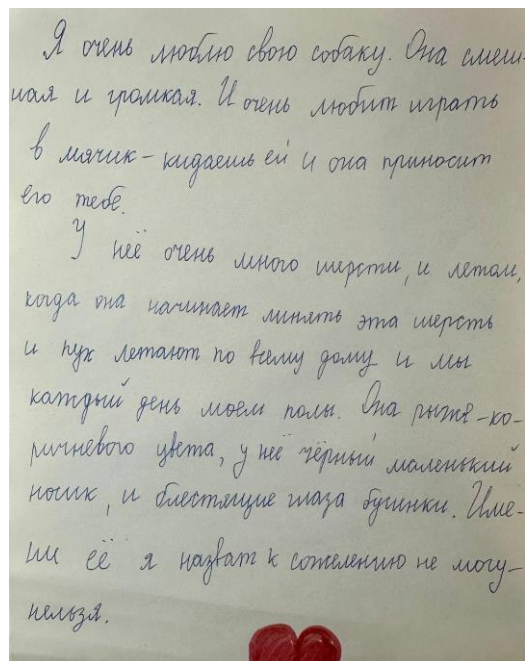 Я очень люблю свою собаку. Она смеш-
ная и громкая. И очень любит играть
в мячик – кидаешь ей и она приносит
его тебе.
У неё очень много шерсти, и летом,
когда она начинает линять эта шерсть
и пух летают по всему дому и мы
каждый день моем полы. Она рыже-ко-
ричневого цвета, у неё чёрный маленький
носик, и блестящие глаза бусинки. Име-
ни её я назват к сожелению не могу –
нельзя.